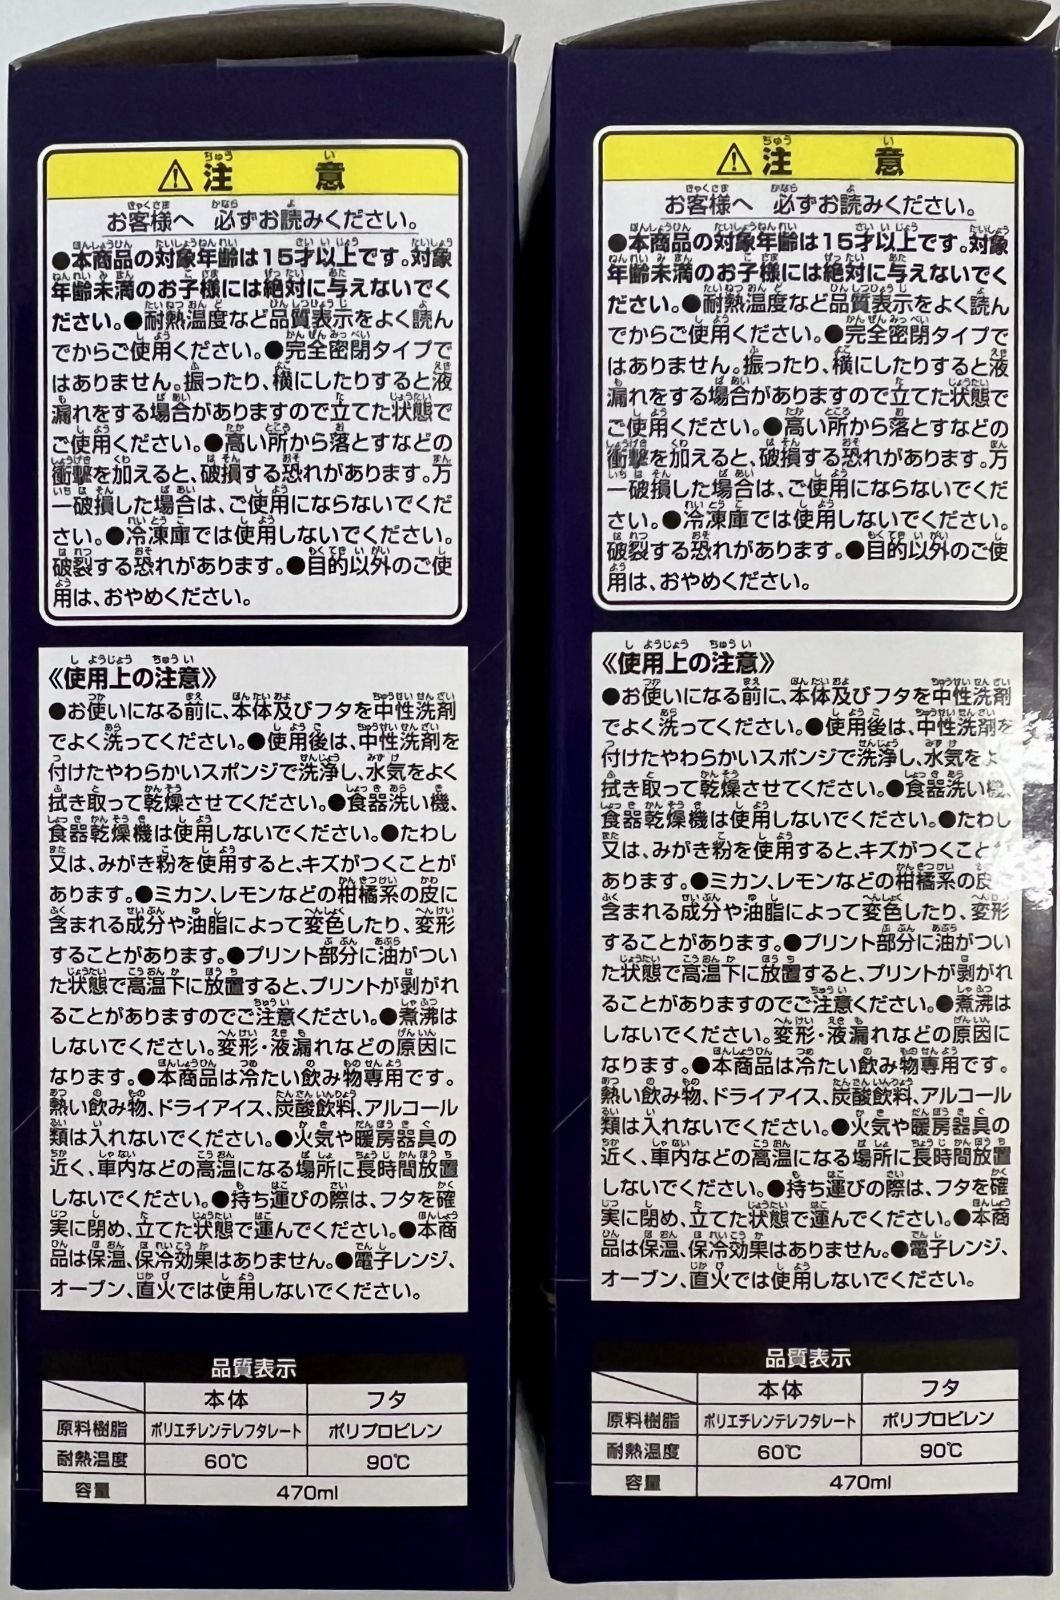 ⚠注 意
お客様へ 必ずお読みください。
●本商品の対象年齢は15才以上です。対象
年齢未満のお子様には絶対に与えないでく
ださい。●耐熱温度など品質表示をよく読ん
でからご使用ください。●完全密閉タイプで
はありません。振ったり、横にしたりすると液
漏れをする場合がありますので立てた状態で
ご使用ください。●高い所から落とすなどの
衝撃を加えると、破損する恐れがあります。万
一破損した場合は、ご使用にならないでくだ
さい。●冷凍庫では使用しないでください。
破裂する恐れがあります。●目的以外のご使
用は、おやめください。
《使用上の注意》
●お使いになる前に、本体及びフタを中性洗剤
でよく洗ってください。●使用後は、中性洗剤を
付けたやわらかいスポンジで洗浄し、水気をよく
拭き取って乾燥させてください。●食器洗い機、
食器乾燥機は使用しないでください。●たわし
又は、みがき粉を使用すると、キズがつくことが
あります。●ミカン、レモンなどの柑橘系の皮に
含まれる成分や油脂によって変色したり、変形
することがあります。●プリント部分に油がつい
た状態で高温下に放置すると、プリントが剥がれ
ることがありますのでご注意ください。●煮沸は
しないでください。変形・液漏れなどの原因に
なります。●本商品は冷たい飲み物専用です。
熱い飲み物、ドライアイス、炭酸飲料、アルコール
類は入れないでください。●火気や暖房器具の
近く、車内などの高温になる場所に長時間放置
しないでください。●持ち運びの際は、フタを確
実に閉め、立てた状態で運んでください。●本商
品は保温、保冷効果はありません。●電子レンジ、
オーブン、直火では使用しないでください。
品質表示
本体 フタ
原料樹脂 ポリエチレンテレフタレート ポリプロピレン
耐熱温度 60℃ 90℃
容量 470ml
⚠注 意
お客様へ 必ずお読みください。
●本商品の対象年齢は15才以上です。対象
年齢未満のお子様には絶対に与えないでく
ださい。●耐熱温度など品質表示をよく読ん
でからご使用ください。●完全密閉タイプで
はありません。振ったり、横にしたりすると液
漏れをする場合がありますので立てた状態で
ご使用ください。●高い所から落とすなどの
衝撃を加えると、破損する恐れがあります。万
一破損した場合は、ご使用にならないでくだ
さい。●冷凍庫では使用しないでください。
破裂する恐れがあります。●目的以外のご使
用は、おやめください。
《使用上の注意》
●お使いになる前に、本体及びフタを中性洗剤
でよく洗ってください。●使用後は、中性洗剤を
付けたやわらかいスポンジで洗浄し、水気を
拭き取って乾燥させてください。●食器洗い機、
食器乾燥機は使用しないでください。●たわし
又は、みがき粉を使用すると、キズがつくこと
あります。●ミカン、レモンなどの柑橘系の皮
含まれる成分や油脂によって変色したり、変形
することがあります。●プリント部分に油がつい
た状態で高温下に放置すると、プリントが剥がれ
ることがありますのでご注意ください。●煮沸は
しないでください。変形・液漏れなどの原因に
なります。●本商品は冷たい飲み物専用です。
熱い飲み物、ドライアイス、炭酸飲料、アルコール
類は入れないでください。●火気や暖房器具の
近く、車内などの高温になる場所に長時間放置
しないでください。●持ち運びの際は、フタを確
実に閉め、立てた状態で運んでください。●本商
品は保温、保冷効果はありません。●電子レンジ、
オーブン、直火では使用しないでください。
品質表示
本体 フタ
原料樹脂 ポリエチレンテレフタレート ポリプロピレン
耐熱温度 60℃ 90℃
容量 470ml